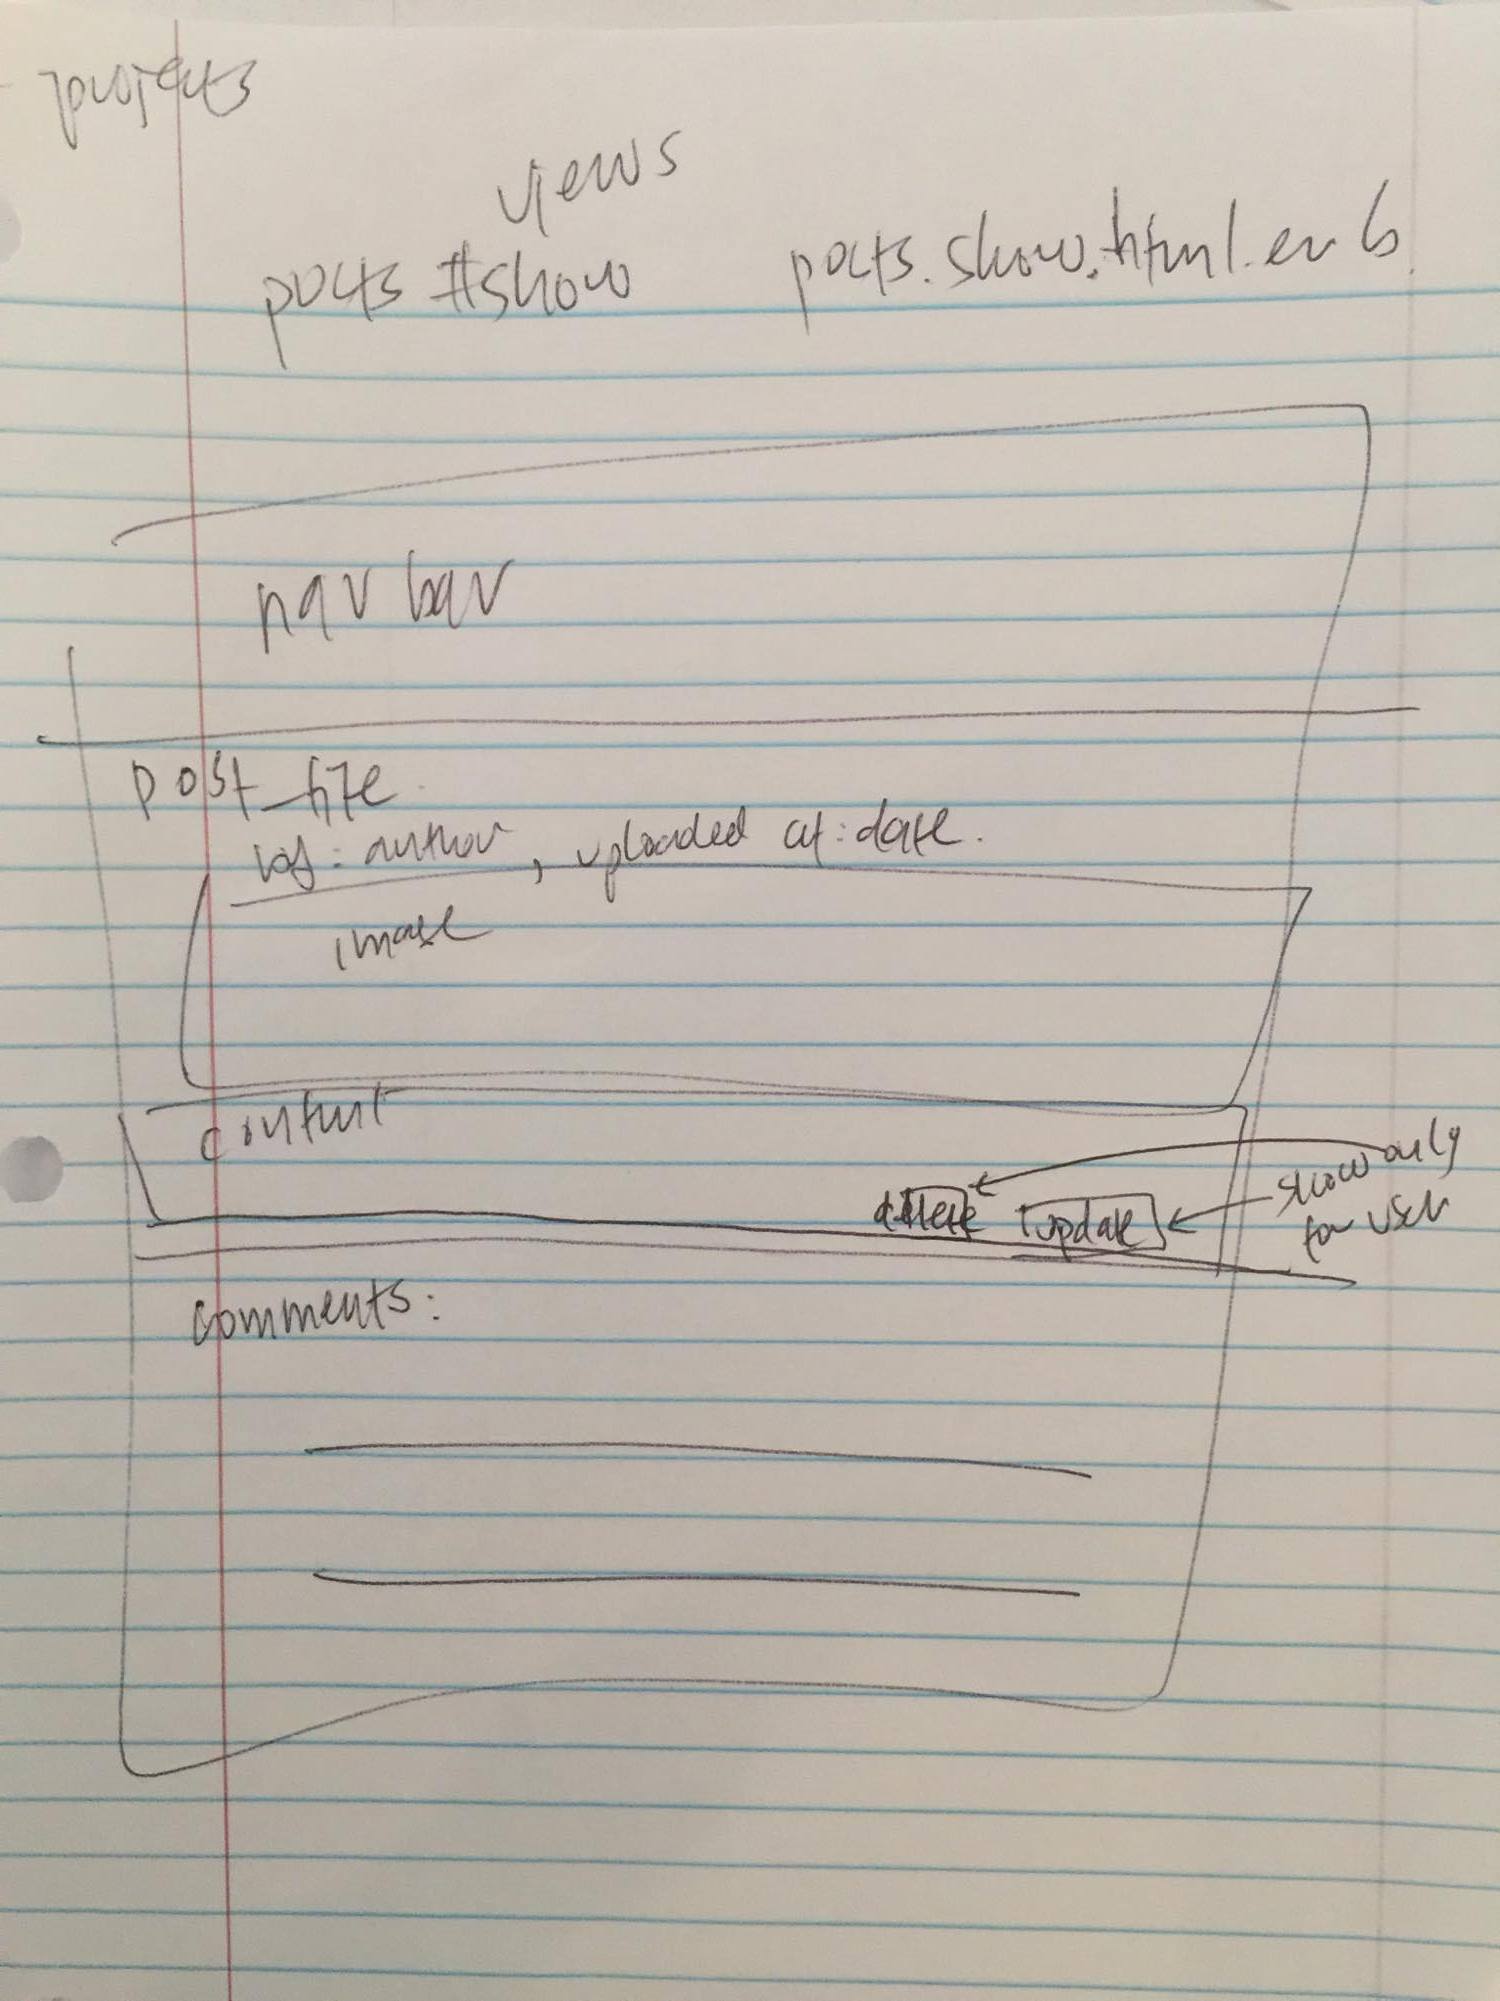 projects
views
posts #show posts.show.html.erb
nav bar
post_title
by: author, uploaded at: date.
image
content
delete update show only
for user
comments: